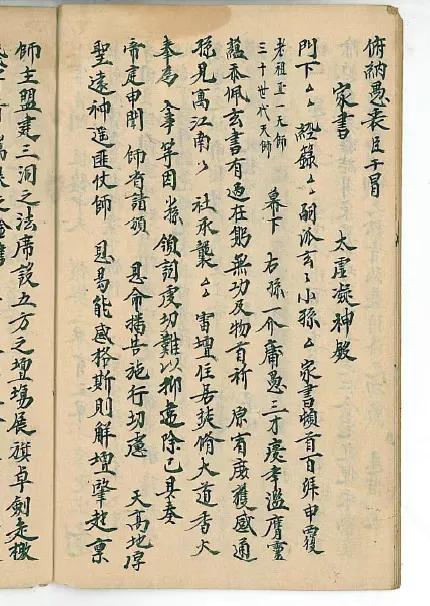 俯納愚衷臣干冒
家書 太虛凝神殿
門下厶厶經籙厶厶嗣派玄々小孫厶家書頓首百拜申覆
老祖㞢一天師
三十世代天師
幕下 右孫一介庸愚三才慶幸濫膺靈
蘊忝佩玄書有過在躬無功及物首祈 原宥庶獲感通
孫見寓江南ㄍ 社承襲厶厶 雷壇住居奘脩大道香火
奉為 入事等因叅孫領詞虔切難以抑違除已具奏
帝廷申聞 師省請頒 恩命播告施行切慮 天高地厚
聖遠神遥匪仗師 恩曷能感格斯則解壇肇起稟
師主盟建三洞之法席設五方之壇場展旗卓劍走檄